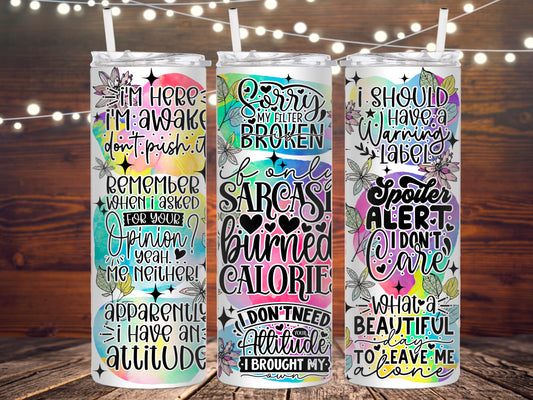 I'M HERE
I'M AWAKE
don't push it
REMEMBER
WHEN I ASKED
FOR YOUR
Opinion?
YEAH.
ME NEITHER!
APPARENTLY
I HAVE AN
ATTITUDE
Sorry
MY FILTER
BROKEN
if only
SARCASM
burned
CALORIES
I DON'T NEED
YOUR
Attitude
I BROUGHT MY
own
I SHOULD
HAVE A
Warning
LABEL
Spoiler
ALERT
I DON'T
Care
WHAT A
BEAUTIFUL
day
TO LEAVE ME
alone